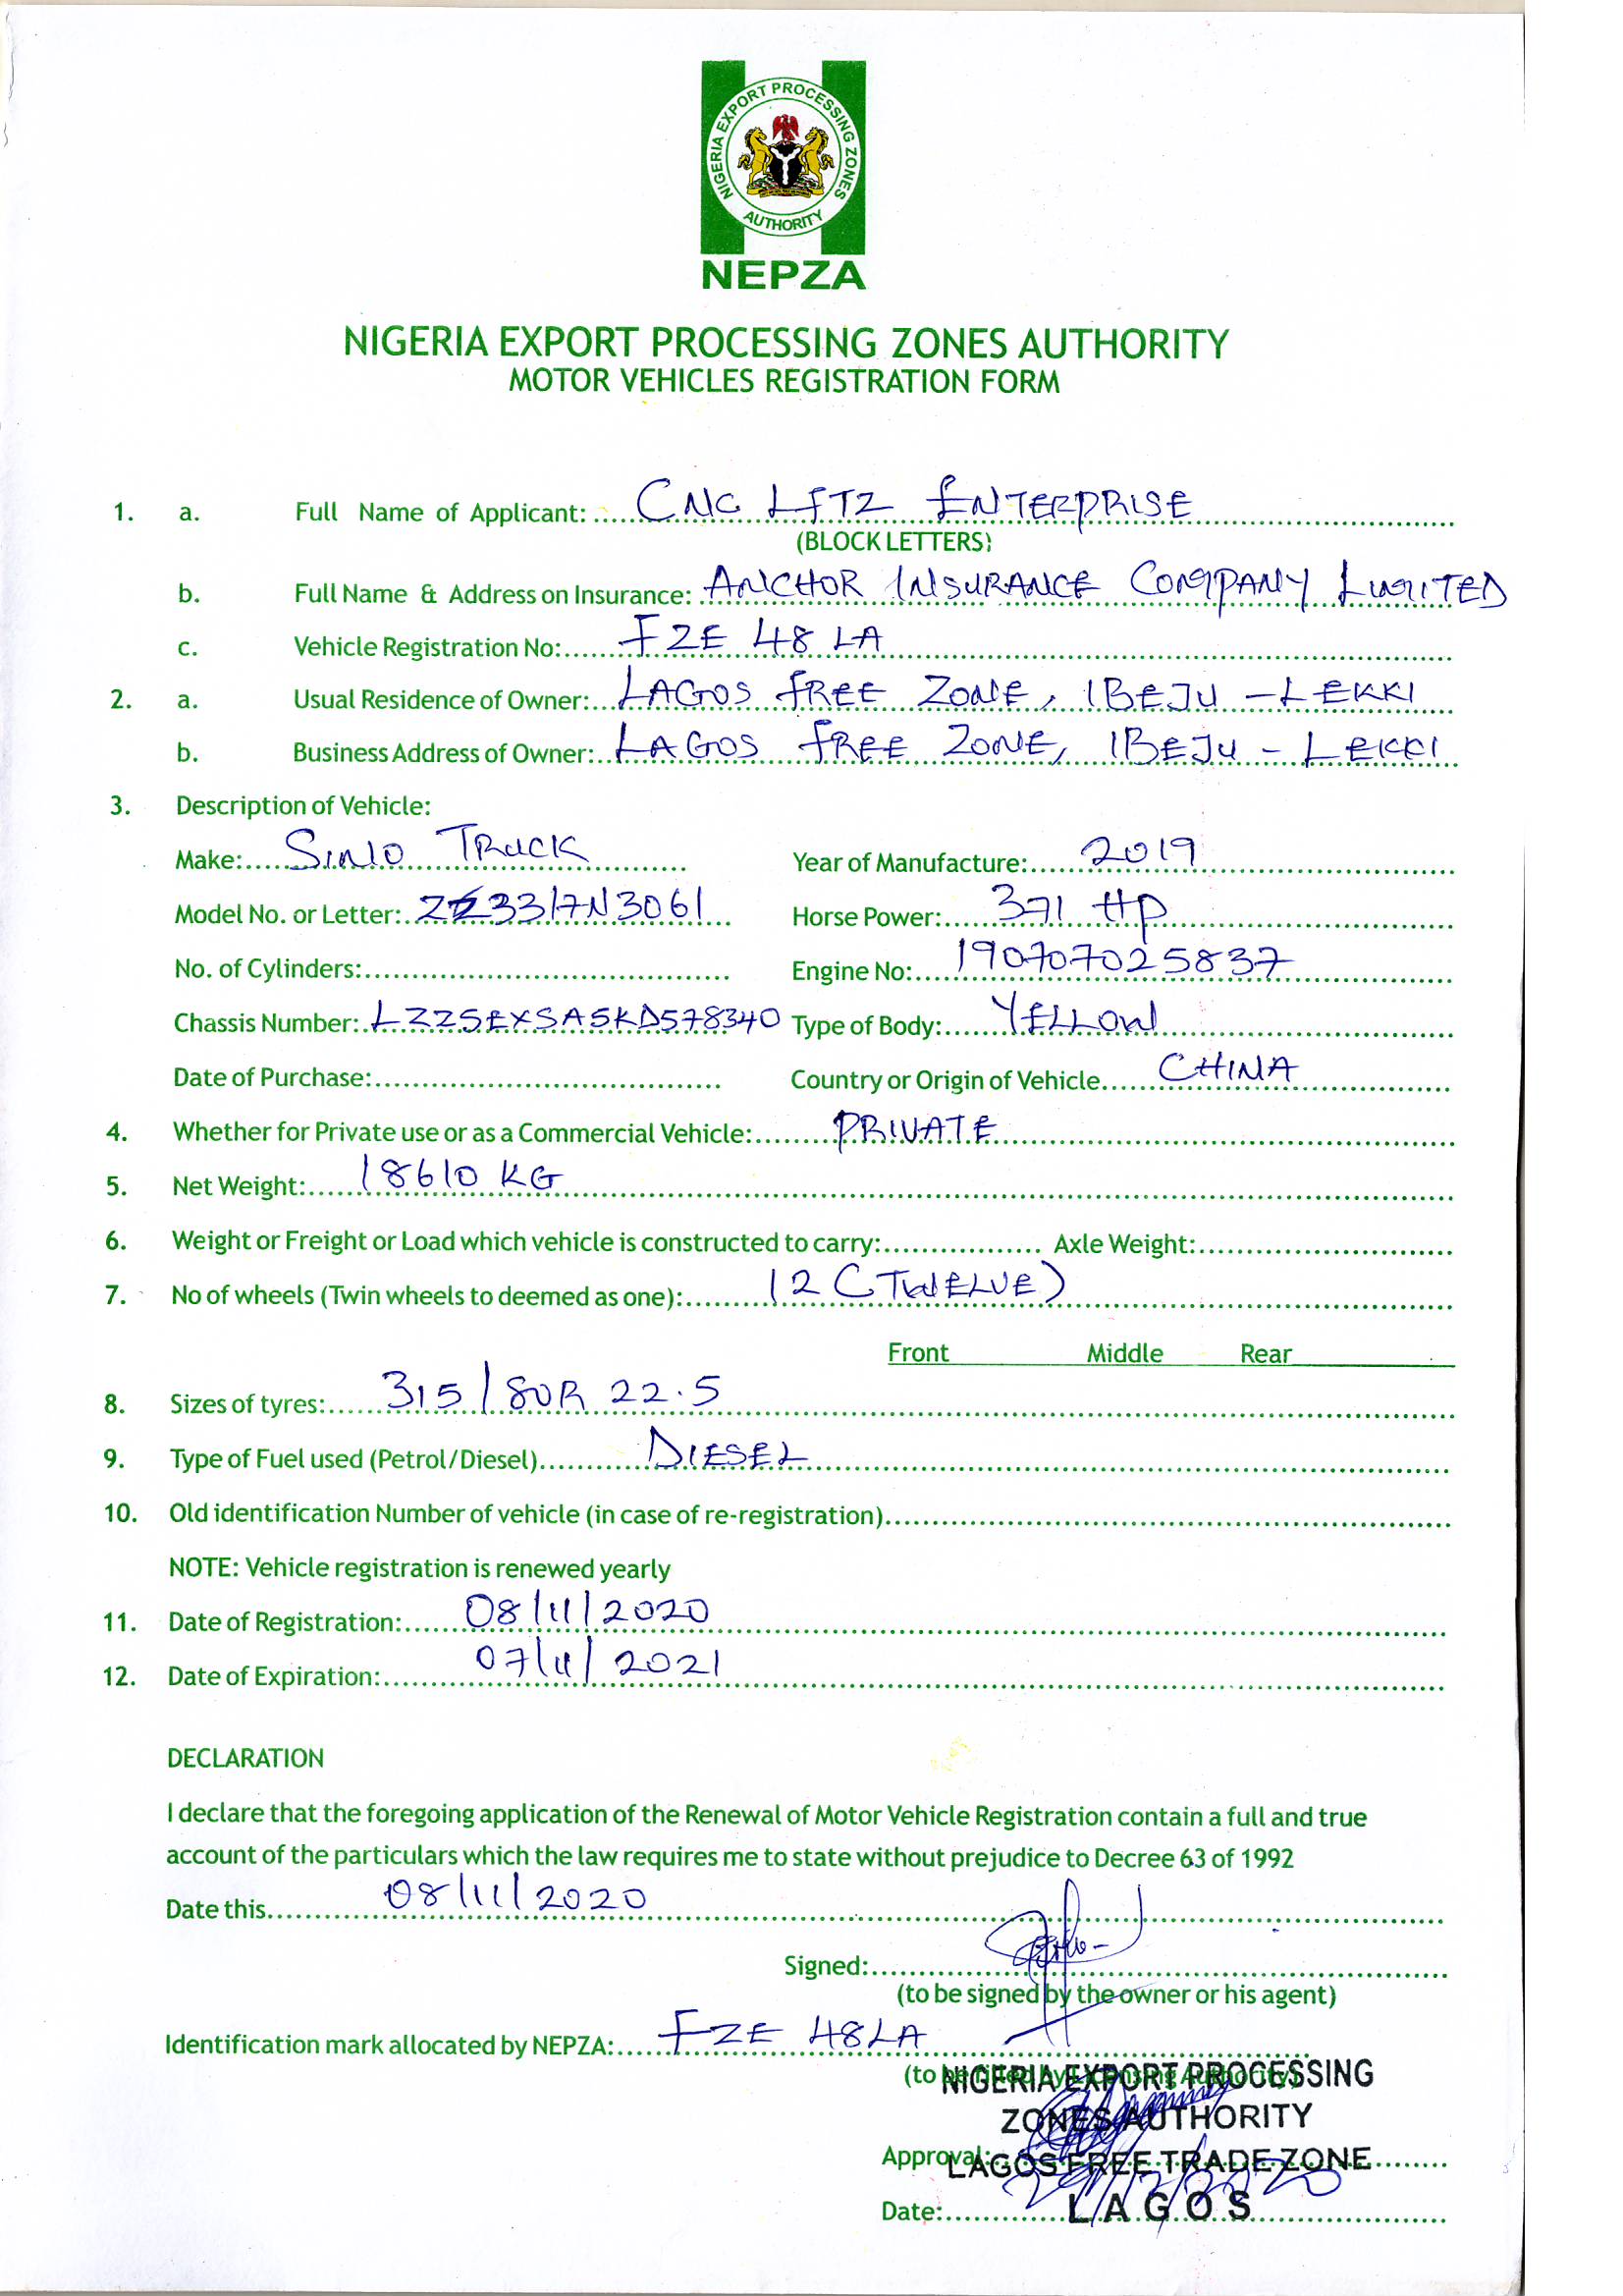 NIGERIA EXPORT PROCESSING ZONES
AUTHORITY
NEPZA
NIGERIA EXPORT PROCESSING ZONES AUTHORITY
MOTOR VEHICLES REGISTRATION FORM
1. a. Full Name of Applicant: CNC LFTZ ENTERPRISE
(BLOCK LETTERS)
b. Full Name & Address on Insurance: ANCHOR INSURANCE COMPANY LIMITED
c. Vehicle Registration No: FZE 48 LA
2. a. Usual Residence of Owner: LAGOS FREE ZONE, IBEJU - LEKKI
b. Business Address of Owner: LAGOS FREE ZONE, IBEJU - LEKKI
3. Description of Vehicle:
Make: SINO TRUCK Year of Manufacture: 2019
Model No. or Letter: ZZ3317N3061 Horse Power: 371 HP
No. of Cylinders: Engine No: 190707025837
Chassis Number: LZZ5EXSA5KD578340 Type of Body: YELLOW
Date of Purchase: Country or Origin of Vehicle CHINA
4. Whether for Private use or as a Commercial Vehicle: PRIVATE
5. Net Weight: 18610 KG
6. Weight or Freight or Load which vehicle is constructed to carry: Axle Weight:
7. No of wheels (Twin wheels to deemed as one): 12 (TWELVE)
Front Middle Rear
8. Sizes of tyres: 315/80R 22.5
9. Type of Fuel used (Petrol/Diesel) DIESEL
10. Old identification Number of vehicle (in case of re-registration)
NOTE: Vehicle registration is renewed yearly
11. Date of Registration: 08/11/2020
12. Date of Expiration: 07/11/2021
DECLARATION
I declare that the foregoing application of the Renewal of Motor Vehicle Registration contain a full and true
account of the particulars which the law requires me to state without prejudice to Decree 63 of 1992
Date this 08/11/2020
Signed:
(to be signed by the owner or his agent)
Identification mark allocated by NEPZA: FZE 48LA
(to be filled by Licensing Authority)
NIGERIA EXPORT PROCESSING
ZONES AUTHORITY
Approval:
LAGOS FREE TRADE ZONE
Date:
LAGOS